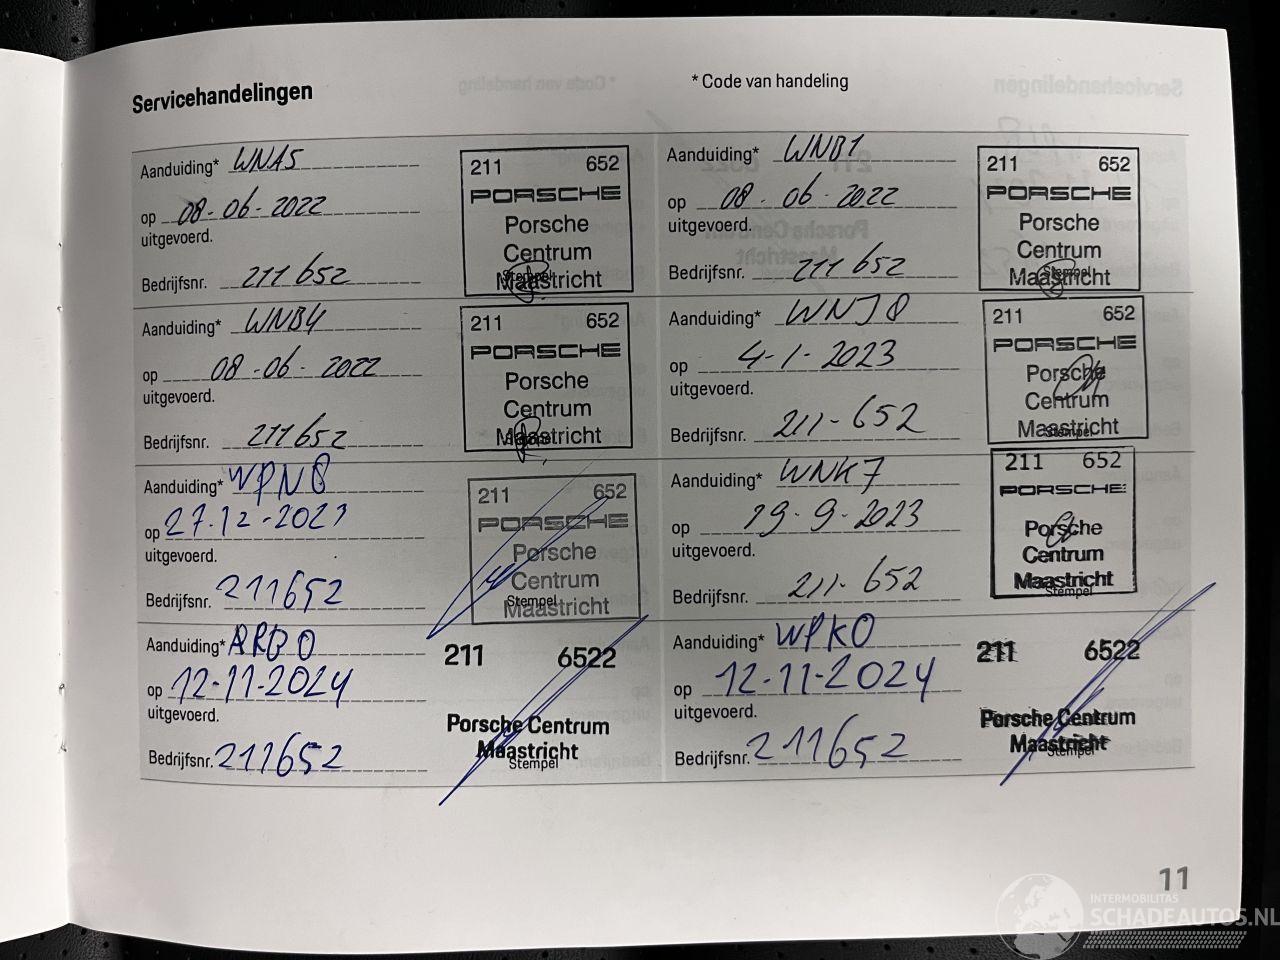 Servicehandelingen
* Code van handeling
Aanduiding* WNA5
op 08-06-2022
uitgevoerd.
Bedrijfsnr. 211 652
211 652
PORSCHE
Porsche
Centrum
Maastricht
Stempel
Aanduiding* WNB1
op 08-06-2022
uitgevoerd.
Bedrijfsnr. 211 652
211 652
PORSCHE
Porsche
Centrum
Maastricht
Stempel
Aanduiding* WNB4
op 08-06-2022
uitgevoerd.
Bedrijfsnr. 211 652
211 652
PORSCHE
Porsche
Centrum
Maastricht
Aanduiding* WNJ8
op 4-1-2023
uitgevoerd.
Bedrijfsnr. 211-652
211 652
PORSCHE
Porsche
Centrum
Maastricht
Stempel
Aanduiding* WPN8
op 27-12-2023
uitgevoerd.
Bedrijfsnr. 211652
211 652
PORSCHE
Porsche
Centrum
Maastricht
Stempel
Aanduiding* WNK7
op 19-9-2023
uitgevoerd.
Bedrijfsnr. 211-652
211 652
PORSCHE
Porsche
Centrum
Maastricht
Stempel
Aanduiding* ARB0
op 12-11-2024
uitgevoerd.
Bedrijfsnr. 211652
211 6522
Porsche Centrum
Maastricht
Stempel
Aanduiding* WPK0
op 12-11-2024
uitgevoerd.
Bedrijfsnr. 211652
211 6522
Porsche Centrum
Maastricht
Stempel
11
INTERMOBILITAS
SCHADEAUTOS.NL